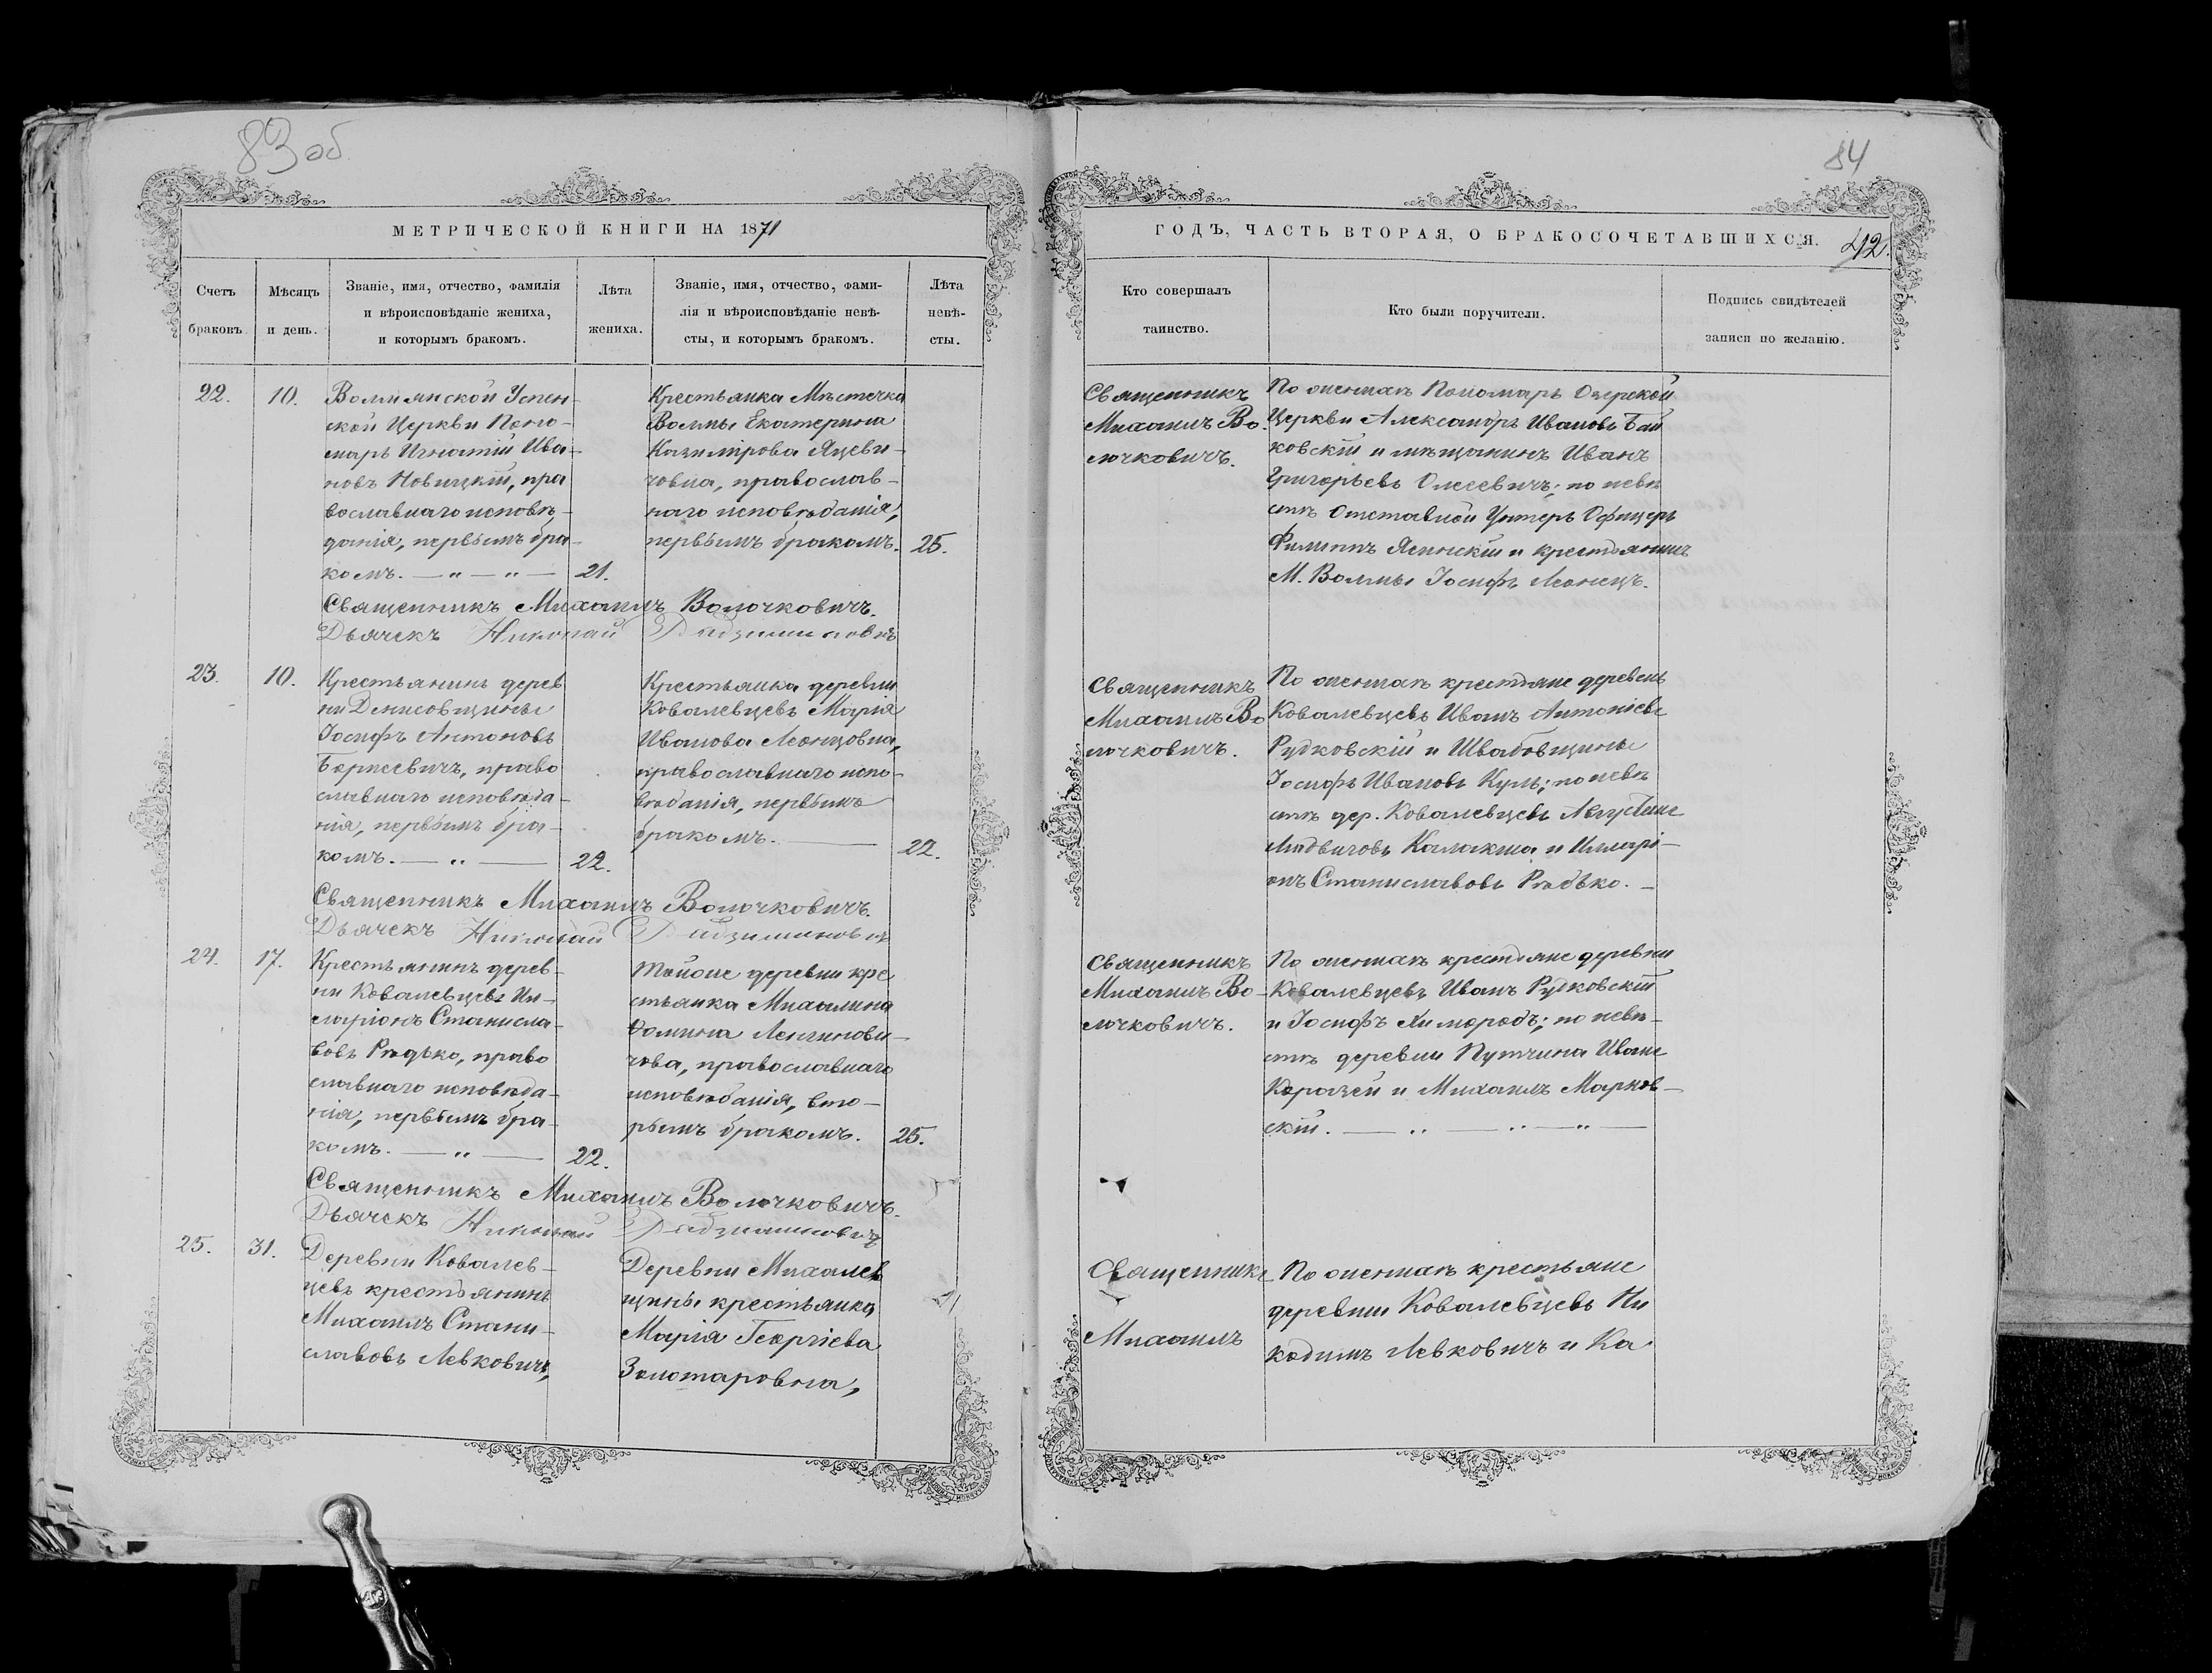 83 об
МЕТРИЧЕСКОЙ КНИГИ НА 1871
Счетъ
браковъ.
Мѣсяцъ
и день.
Званіе, имя, отчество, фамилія
и вѣроисповѣданіе жениха,
и которымъ бракомъ.
Лѣта
жениха.
Званіе, имя, отчество, фами-
лія и вѣроисповѣданіе невѣ-
сты, и которымъ бракомъ.
Лѣта
невѣ-
сты.
22.
10.
Волмянской Успен-
ской Церкви Поно-
марь Игнатій Ива-
новъ Новицкій, пра
вославнаго исповѣ-
данія, первымъ бра-
комъ. — „ — „ —
21.
Крестьянка Мѣстечка
Волмы Екатерина
Казимірова Яцеви-
човна, православ-
наго исповѣданія,
первымъ бракомъ.
25.
Священникъ Михаилъ Волочковичъ.
Дьячекъ Николай
23.
10.
Крестьянинъ дерев
ни Денисовщины
Іосифъ Антоновъ
православ
славнаго исповѣда-
нія, первымъ бра-
комъ. — „ —
22.
Крестьянка деревни
Ковалевцевъ Марія
Иванова Леонцовна,
православнаго испо-
вѣданія, первымъ
бракомъ. —
22.
Священникъ Михаилъ Волочковичъ.
Дьячекъ Николай
24.
17.
Крестьянинъ дерев-
ни Ковалевцевъ Ил-
ларіонъ Станисла-
вовъ Рѣдько, право
славнаго исповѣда-
нія, первымъ бра-
комъ. — „ —
22.
Тойоже деревни кре
стьянка Михалина
Фомина
чова, православнаго
исповѣданія, вто-
рымъ бракомъ.
25.
Священникъ Михаилъ Волочковичъ.
Дьячекъ Николай
25.
31.
Деревни Ковалев-
цевъ крестьянинъ
Михаилъ Стани-
славовъ Левковичъ,
Деревни Михалев
щины крестьянка
Марія Георгіева
Золотаровна,
84
ГОДЪ, ЧАСТЬ ВТОРАЯ, О БРАКОСОЧЕТАВШИХСЯ.
42.
Кто совершалъ
таинство.
Кто были поручители.
Подпись свидѣтелей
записи по желанію.
Священникъ
Михаилъ Во-
лочковичъ.
По женихѣ Пономарь Озерской
Церкви Александръ Ивановъ Бай
ковскій и мѣщанинъ Иванъ
Григорьевъ Олесевичъ; по невѣ
стѣ Отставной Унтеръ Офицеръ
Филиппъ Ясинскій и крестьянинъ
М. Волмы Іосифъ Леонецъ.
Священникъ
Михаилъ Во
лочковичъ.
По женихѣ крестьяне деревень
Ковалевцевъ Иванъ Антоніевъ
Рудковскій и Швабовщины
Іосифъ Ивановъ Куль; по невѣ
стѣ дер. Ковалевцевъ Августинъ
Людвиговъ Калакша и Иллари-
онъ Станиславовъ Рѣдько. —
Священникъ
Михаилъ Во-
лочковичъ.
По женихѣ крестьяне деревни
Ковалевцевъ Иванъ Рудковскій
и Іосифъ Химородъ; по невѣ-
стѣ деревни Путчина Иванъ
Коразей и Михаилъ Марков-
скій. — „ — „ — „ —
Священникъ
Михаилъ
По женихѣ крестьяне
деревни Ковалевцевъ Ни
кодимъ Левковичъ и Ка